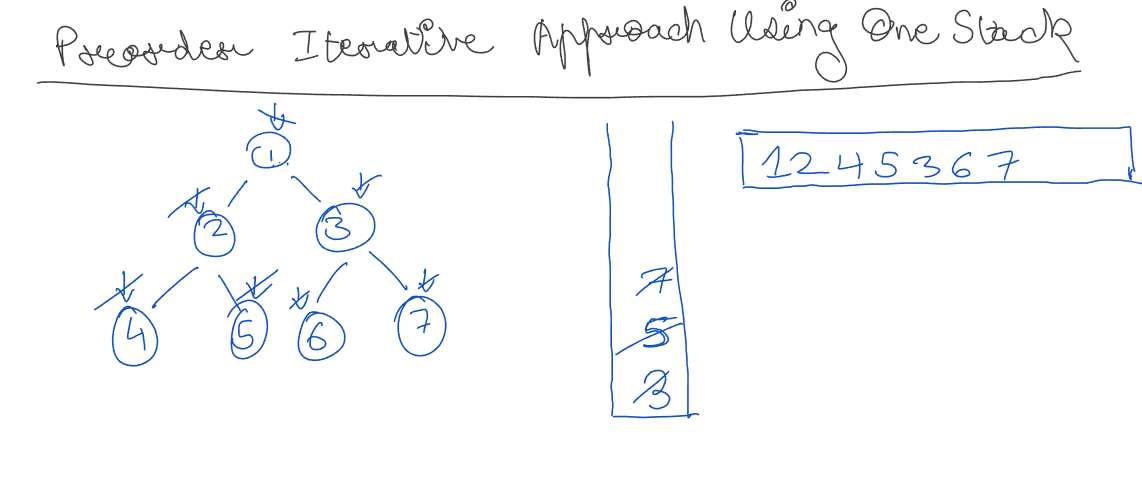 Preorder Iterative Approach Using One Stack
1
2 3
4 5 6 7
7
5
3
1 2 4 5 3 6 7